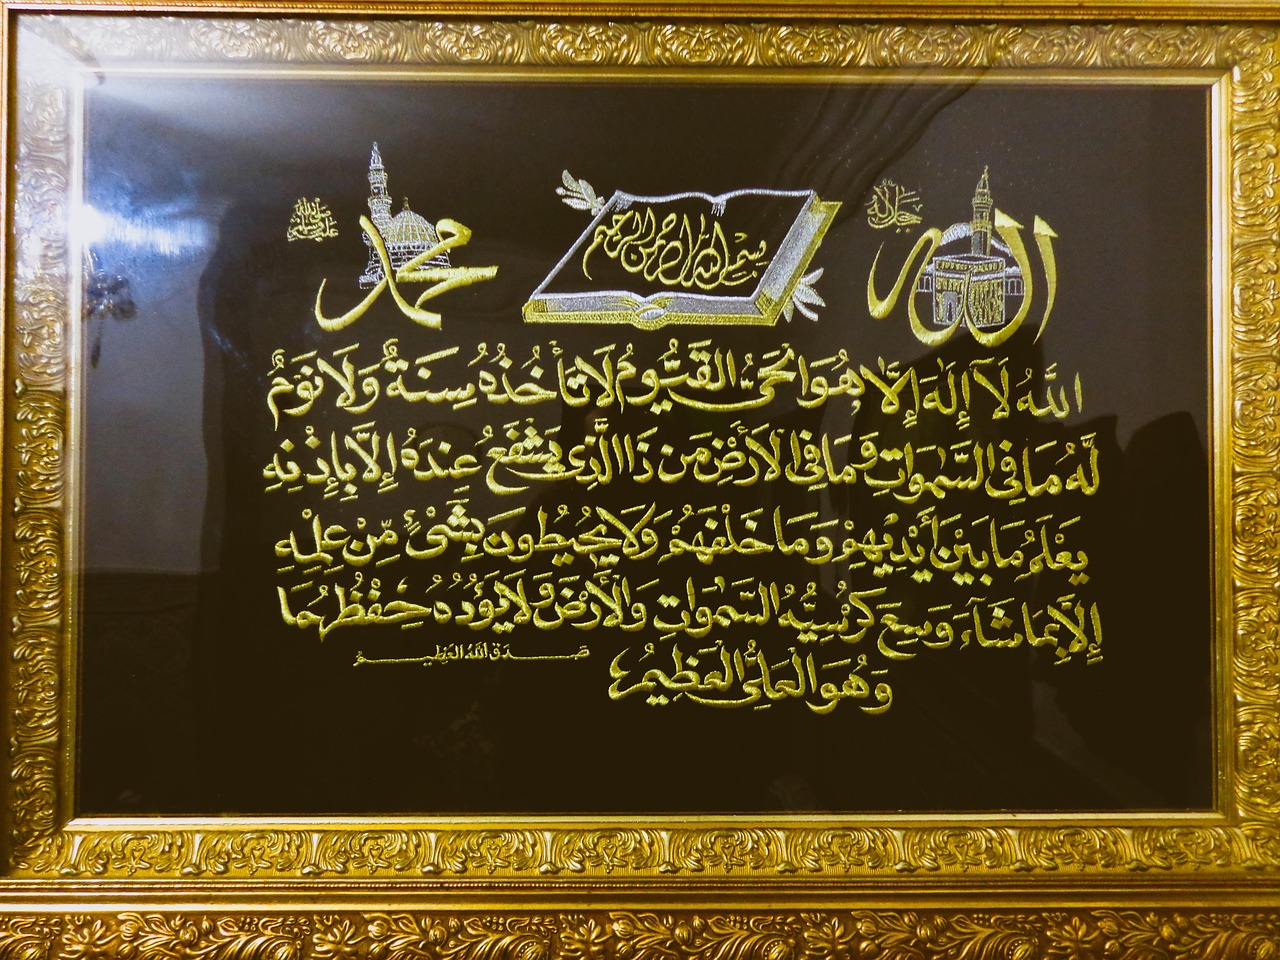 الله
جل جلاله
بسم الله الرحمن الرحيم
محمد
صلى الله عليه وسلم
اللَّهُ لَآ إِلَهَ إِلَّا هُوَ الْحَيُّ الْقَيُّومُ لَا تَأْخُذُهُ سِنَةٌ وَلَا نَوْمٌ
لَّهُ مَا فِي السَّمٰوَاتِ وَمَا فِي الْأَرْضِ مَن ذَا الَّذِي يَشْفَعُ عِندَهُ إِلَّا بِإِذْنِهِ
يَعْلَمُ مَا بَيْنَ أَيْدِيهِمْ وَمَا خَلْفَهُمْ وَلَا يُحِيطُونَ بِشَيْءٍ مِّنْ عِلْمِهِ
إِلَّا بِمَا شَآءَ وَسِعَ كُرْسِيُّهُ السَّمٰوَاتِ وَالْأَرْضَ وَلَا يَؤُدُهُ حِفْظُهُمَا
وَهُوَ الْعَلِيُّ الْعَظِيمُ
صدق الله العظيم